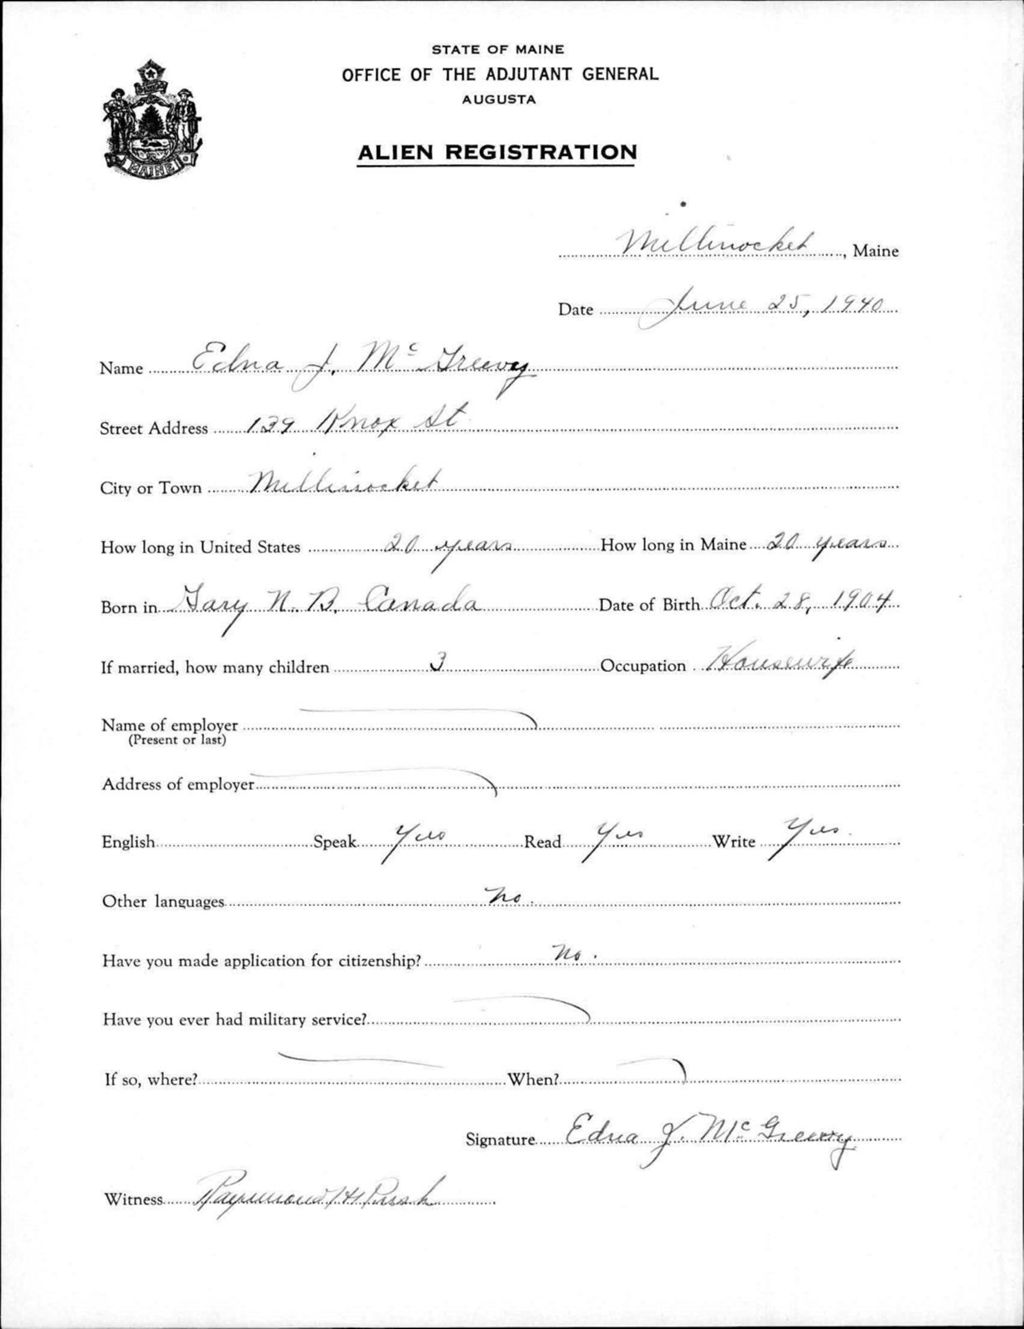 STATE OF MAINE
OFFICE OF THE ADJUTANT GENERAL
AUGUSTA
ALIEN REGISTRATION
MAINE
Millinocket, Maine
Date June 25, 1940
Name Edna J. McGreevy
Street Address 139 Knox St
City or Town Millinocket
How long in United States 20 years How long in Maine 20 years
Born in Gary N. B. Canada Date of Birth Oct. 28, 1904
If married, how many children 3 Occupation Housewife
Name of employer
(Present or last)
Address of employer
English Speak Yes Read Yes Write Yes.
Other languages no.
Have you made application for citizenship? No.
Have you ever had military service?
If so, where? When?
Signature Edna J. McGreevy
Witness Raymond H